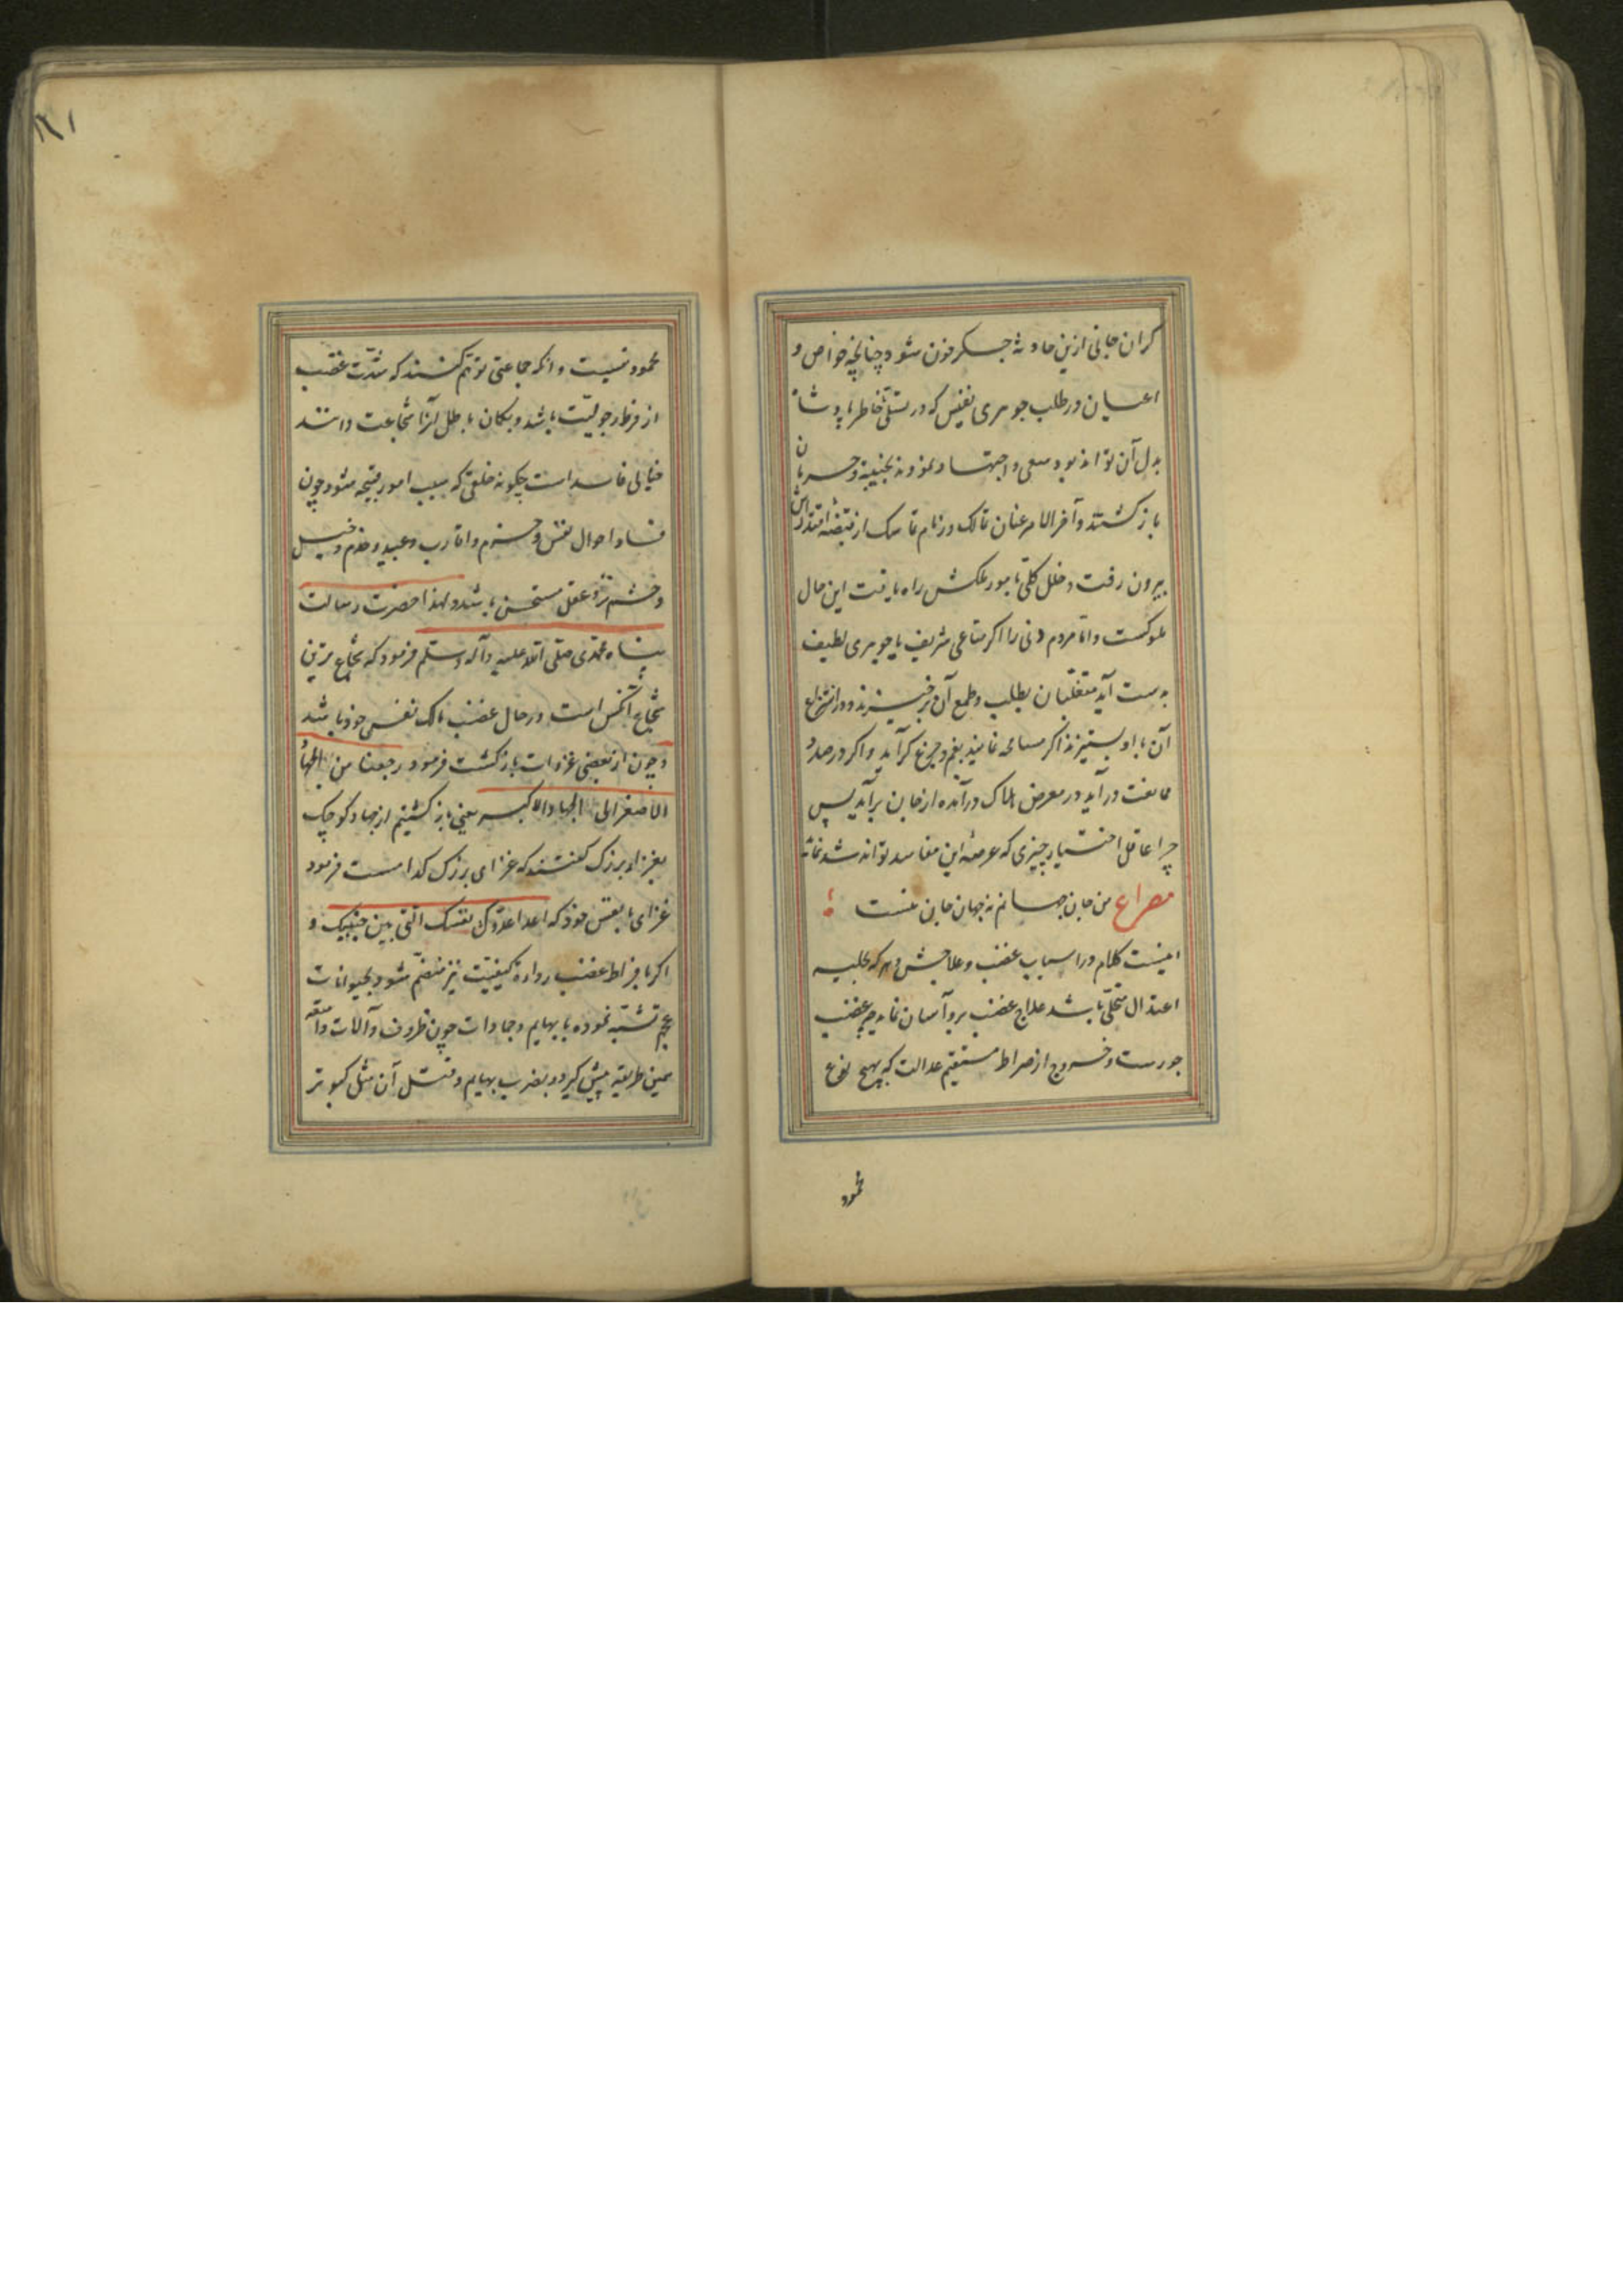 کران جانی ازین حادثه جسکر خون شود چنانچه خواص و
اعیان در طلب جوهری نفیس که در تسلّی خاطر پادشاه
بدل آن تواند بود سعی و اجتهاد نمودند بخیبه و حرمان
بازکشتند و آخر الامر عنان تمالک و زمام تماسک از قبضه اقتدارش
بیرون رفت و خلل کلّی بامور ملکش راه یافت این حال
ملوکست و امّا مردم دنی را اکر متاعی شریف یا جوهری لطیف
بدست آید متغلّبان بطلب و طمع آن برخیزند و در انتزاع
آن با او بستیزند اکر مسامحه نمایند بغم و جزع کرآید و اکر در صدد
ممانعت درآید در معرض هلاک درآمده از جان برآید پس
چرا عاقل اختیار چیزی که عرضه این مفاسد تواند شد نماید
مصراع من جان جهانم نه جهان جان منست
اینست کلام در اسباب غضب و علاجش و هر که بحلیه
اعتدال متحلّی باشد علاج غضب برو آسان نماید چه غضب
جورست و خروج از صراط مستقیم عدالت که بهیچ نوع
محمود
۱۸۱
محمود نیست و آنکه جماعتی توهّم کنند که شدّت غضب
از فرط رجولیّت باشد و بکمان باطل آنرا شجاعت دانند
خیالی فاسد است چکونه خلقی که سبب امور قبیحه شود چون
فساد احوال نفس و حرم و اقارب و عبید و خدم و خیل
و حشم نزد عقل مستحسن باشد و لهذا حضرت رسالت
پناه محمّدی صلّی الله علیه و آله و سلّم فرمود که شجاع ترین
شجاع آنکس است در حال غضب مالک نفس خود باشد
و چون از بعضی غزوات بازکشت فرمود رجعنا من الجهاد
الاصغر الی الجهاد الاکبر یعنی باز کشتیم از جهاد کوچک
بغزاء بزرک کفتند که غزای بزرک کدامست فرمود
غزای با نفس خود که اعدا عدوّک نفسک الّتی بین جنبیک و
اکر با فراط غضب رداءة کیفیّت نیز منضم شود بحیوانات
عجم تشبّه نموده با بهایم و جمادات چون ظروف و آلات و امتعه
همین طریقه پیش کیرد و بضرب بهایم و قتل آن مثل کبوتر